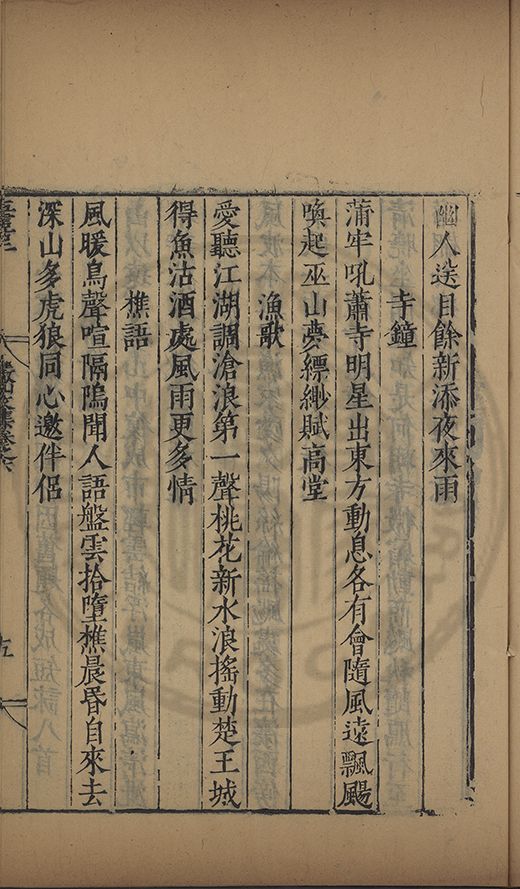 幽人送目餘新添夜來雨
寺鐘
蒲牢吼蕭寺明星出東方動息各有會隨風遠飄颺
喚起巫山夢縹緲賦高堂
漁歌
愛聽江湖調滄浪第一聲桃花新水浪搖動楚王城
得魚沽酒處風雨更多情
樵語
風暖鳥聲喧隔隖聞人語盤雲拾墮樵晨昏自來去
深山多虎狼同心邀伴侶